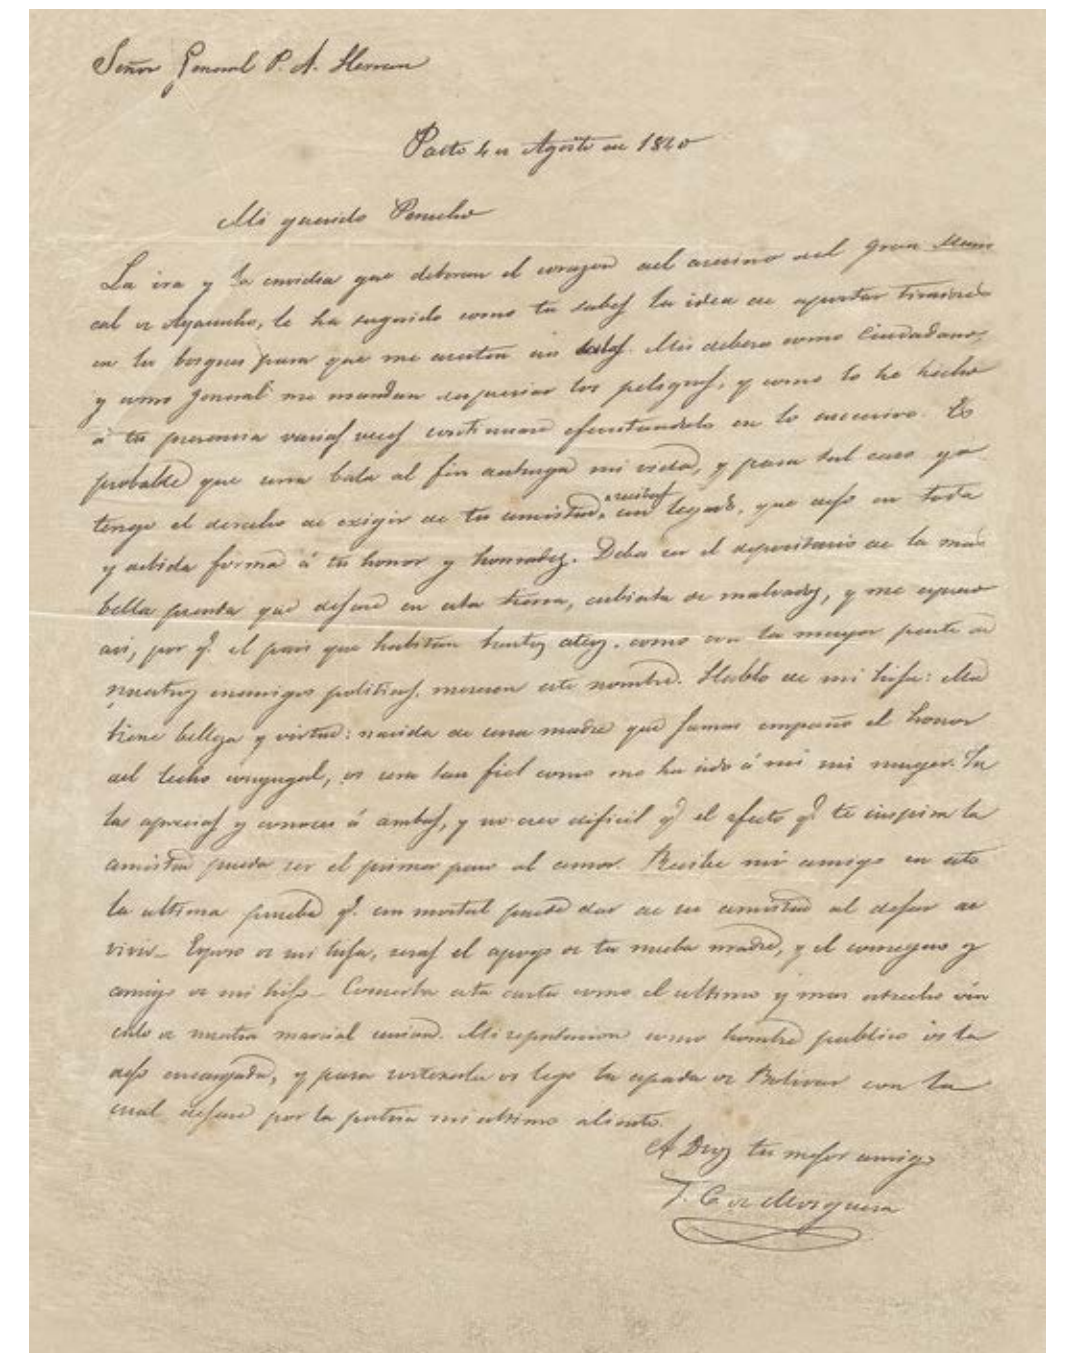 Señor General P. A. Herran
Pasto 4 de Agosto de 1840
Mi querido Perucho
La ira y la envidia que deboran el corazon del asesino del Gran Maris
cal de Ayacucho, le ha sugerido como tu sabes la idea de apostar tiradores
en los bosques para que me asesten sus balas. Mis deberes como Ciudadano,
y como General me mandan despreciar los peligros, y como lo he hecho
á tu presencia varias veces continuaré ejecutandolo en lo sucesivo. Es
probable que una bala al fin destruya mi vida, y para tal caso yo
tengo el derecho de exigir de tu amistad recibas un legado, que dejo en toda
y debida forma á tu honor y honradez. Debes ser el depositario de la mas
bella prenda que dejaré en esta tierra, cubierta de malvados, y me espreso
asi, por q.e el pais que habitan tantos ateos, como son la mayor parte de
nuestros enemigos politicos, merecen este nombre. Hablo de mi hija: Ella
tiene belleza y virtud: nacida de una madre que jamas empañó el honor
del lecho conyugal, os sera tan fiel como me ha sido á mi mi muger. Tu
las aprecias y conoces á ambas, y no creo dificil q.e el afecto q.e te inspira la
amistad pueda ser el primer paso al amor. Recibe mi amigo en esto
la ultima prueba q.e un mortal puede dar de su amistad al dejar de
vivir. Esposo de mi hija, seras el apoyo de tu nueba madre, y el consegero y
amigo de mi hijo. Conserba esta carta como el ultimo y mas estrecho vin
culo de nuestra marcial union. Mi reputacion como hombre publico os la
dejo encargada, y para sostenerla os lego la espada de Bolivar con la
cual defend por la patria mi ultimo aliento.
A Dios tu mejor amigo
T. C. de Mosquera